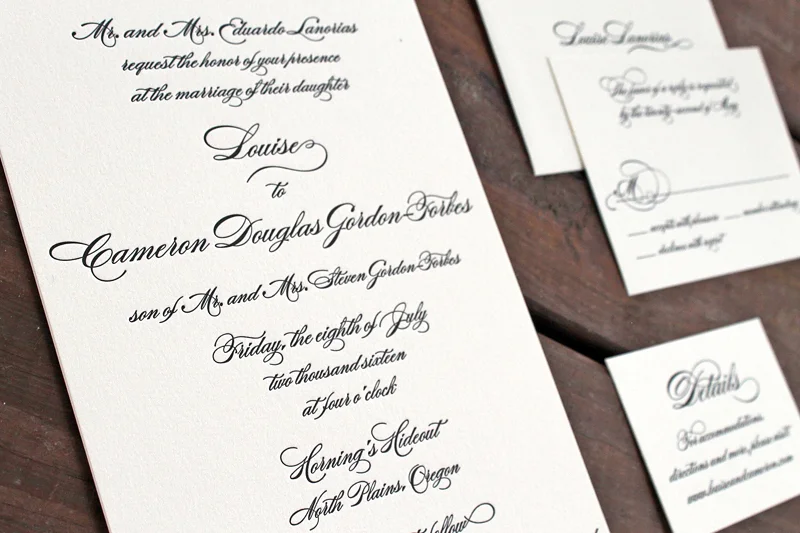 Mr. and Mrs. Eduardo Lanorias
request the honor of your presence
at the marriage of their daughter
Louise
to
Cameron Douglas Gordon-Forbes
son of Mr. and Mrs. Steven Gordon-Forbes
Friday, the eighth of July
two thousand sixteen
at four o'clock
Horning's Hideout
North Plains, Oregon
Louise Lanorias
The favor of a reply is requested
by the twenty-second of May
M
accepts with pleasure
declines with regret
Details
For accommodations,
directions and more, please visit
www.louiseandcameron.com